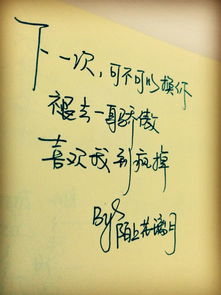 下一次，可不可以换你
褪去一身骄傲
喜欢我到疯掉
By 陌上若离月